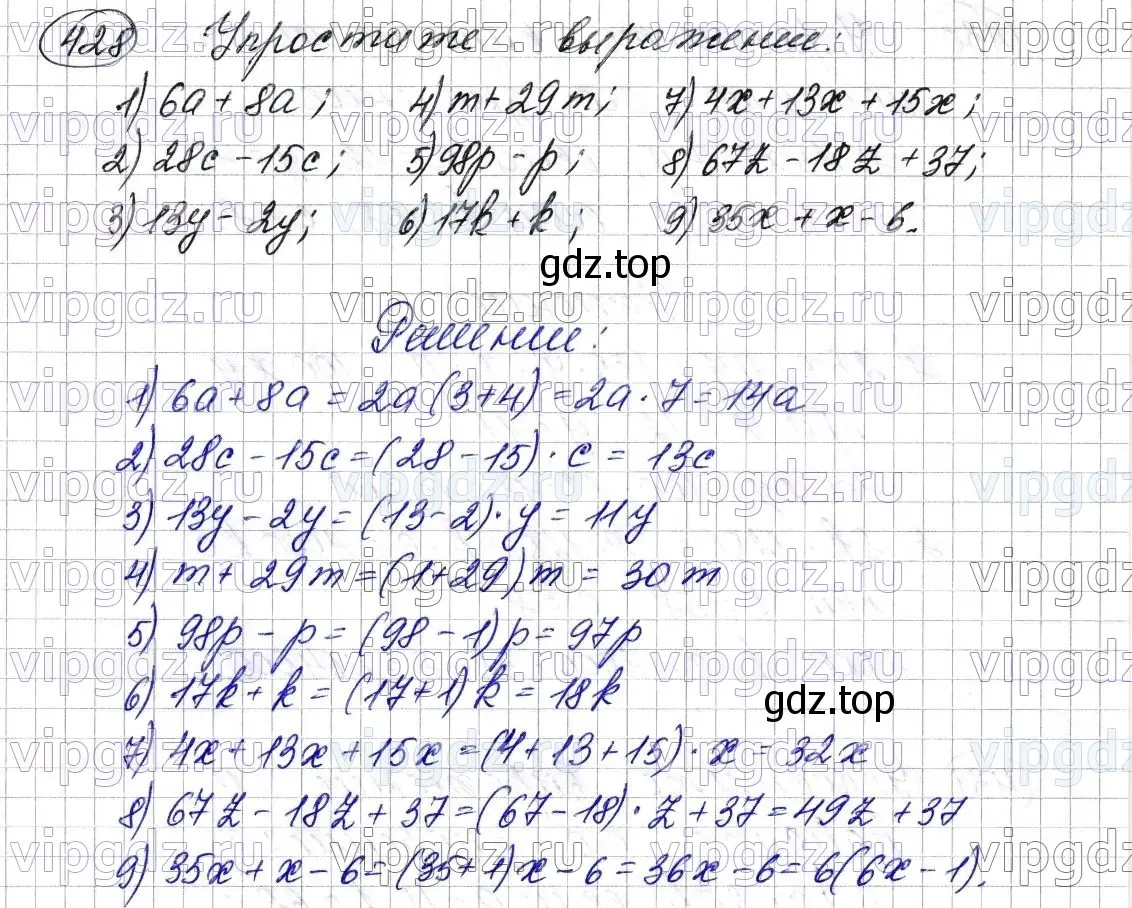 428 Упростите выражение:
1) 6a + 8a; 4) m + 29m; 7) 4x + 13x + 15x;
2) 28c - 15c; 5) 98p - p; 8) 67z - 18z + 37;
3) 13y - 2y; 6) 17k + k; 9) 35x + x - 6.
gdz.top
Решение:
1) 6a + 8a = 2a (3+4) = 2a · 7 = 14a
2) 28c - 15c = (28 - 15) · c = 13c
3) 13y - 2y = (13-2) · y = 11y
4) m + 29m = (1+29) m = 30m
5) 98p - p = (98 - 1) p = 97p
6) 17k + k = (17+1) k = 18k
gdz.top
7) 4x + 13x + 15x = (4 + 13 + 15) · x = 32x
8) 67z - 18z + 37 = (67 - 18) · z + 37 = 49z + 37
9) 35x + x - 6 = (35 + 1)x - 6 = 36x - 6 = 6(6x - 1).
vipgdz.ru